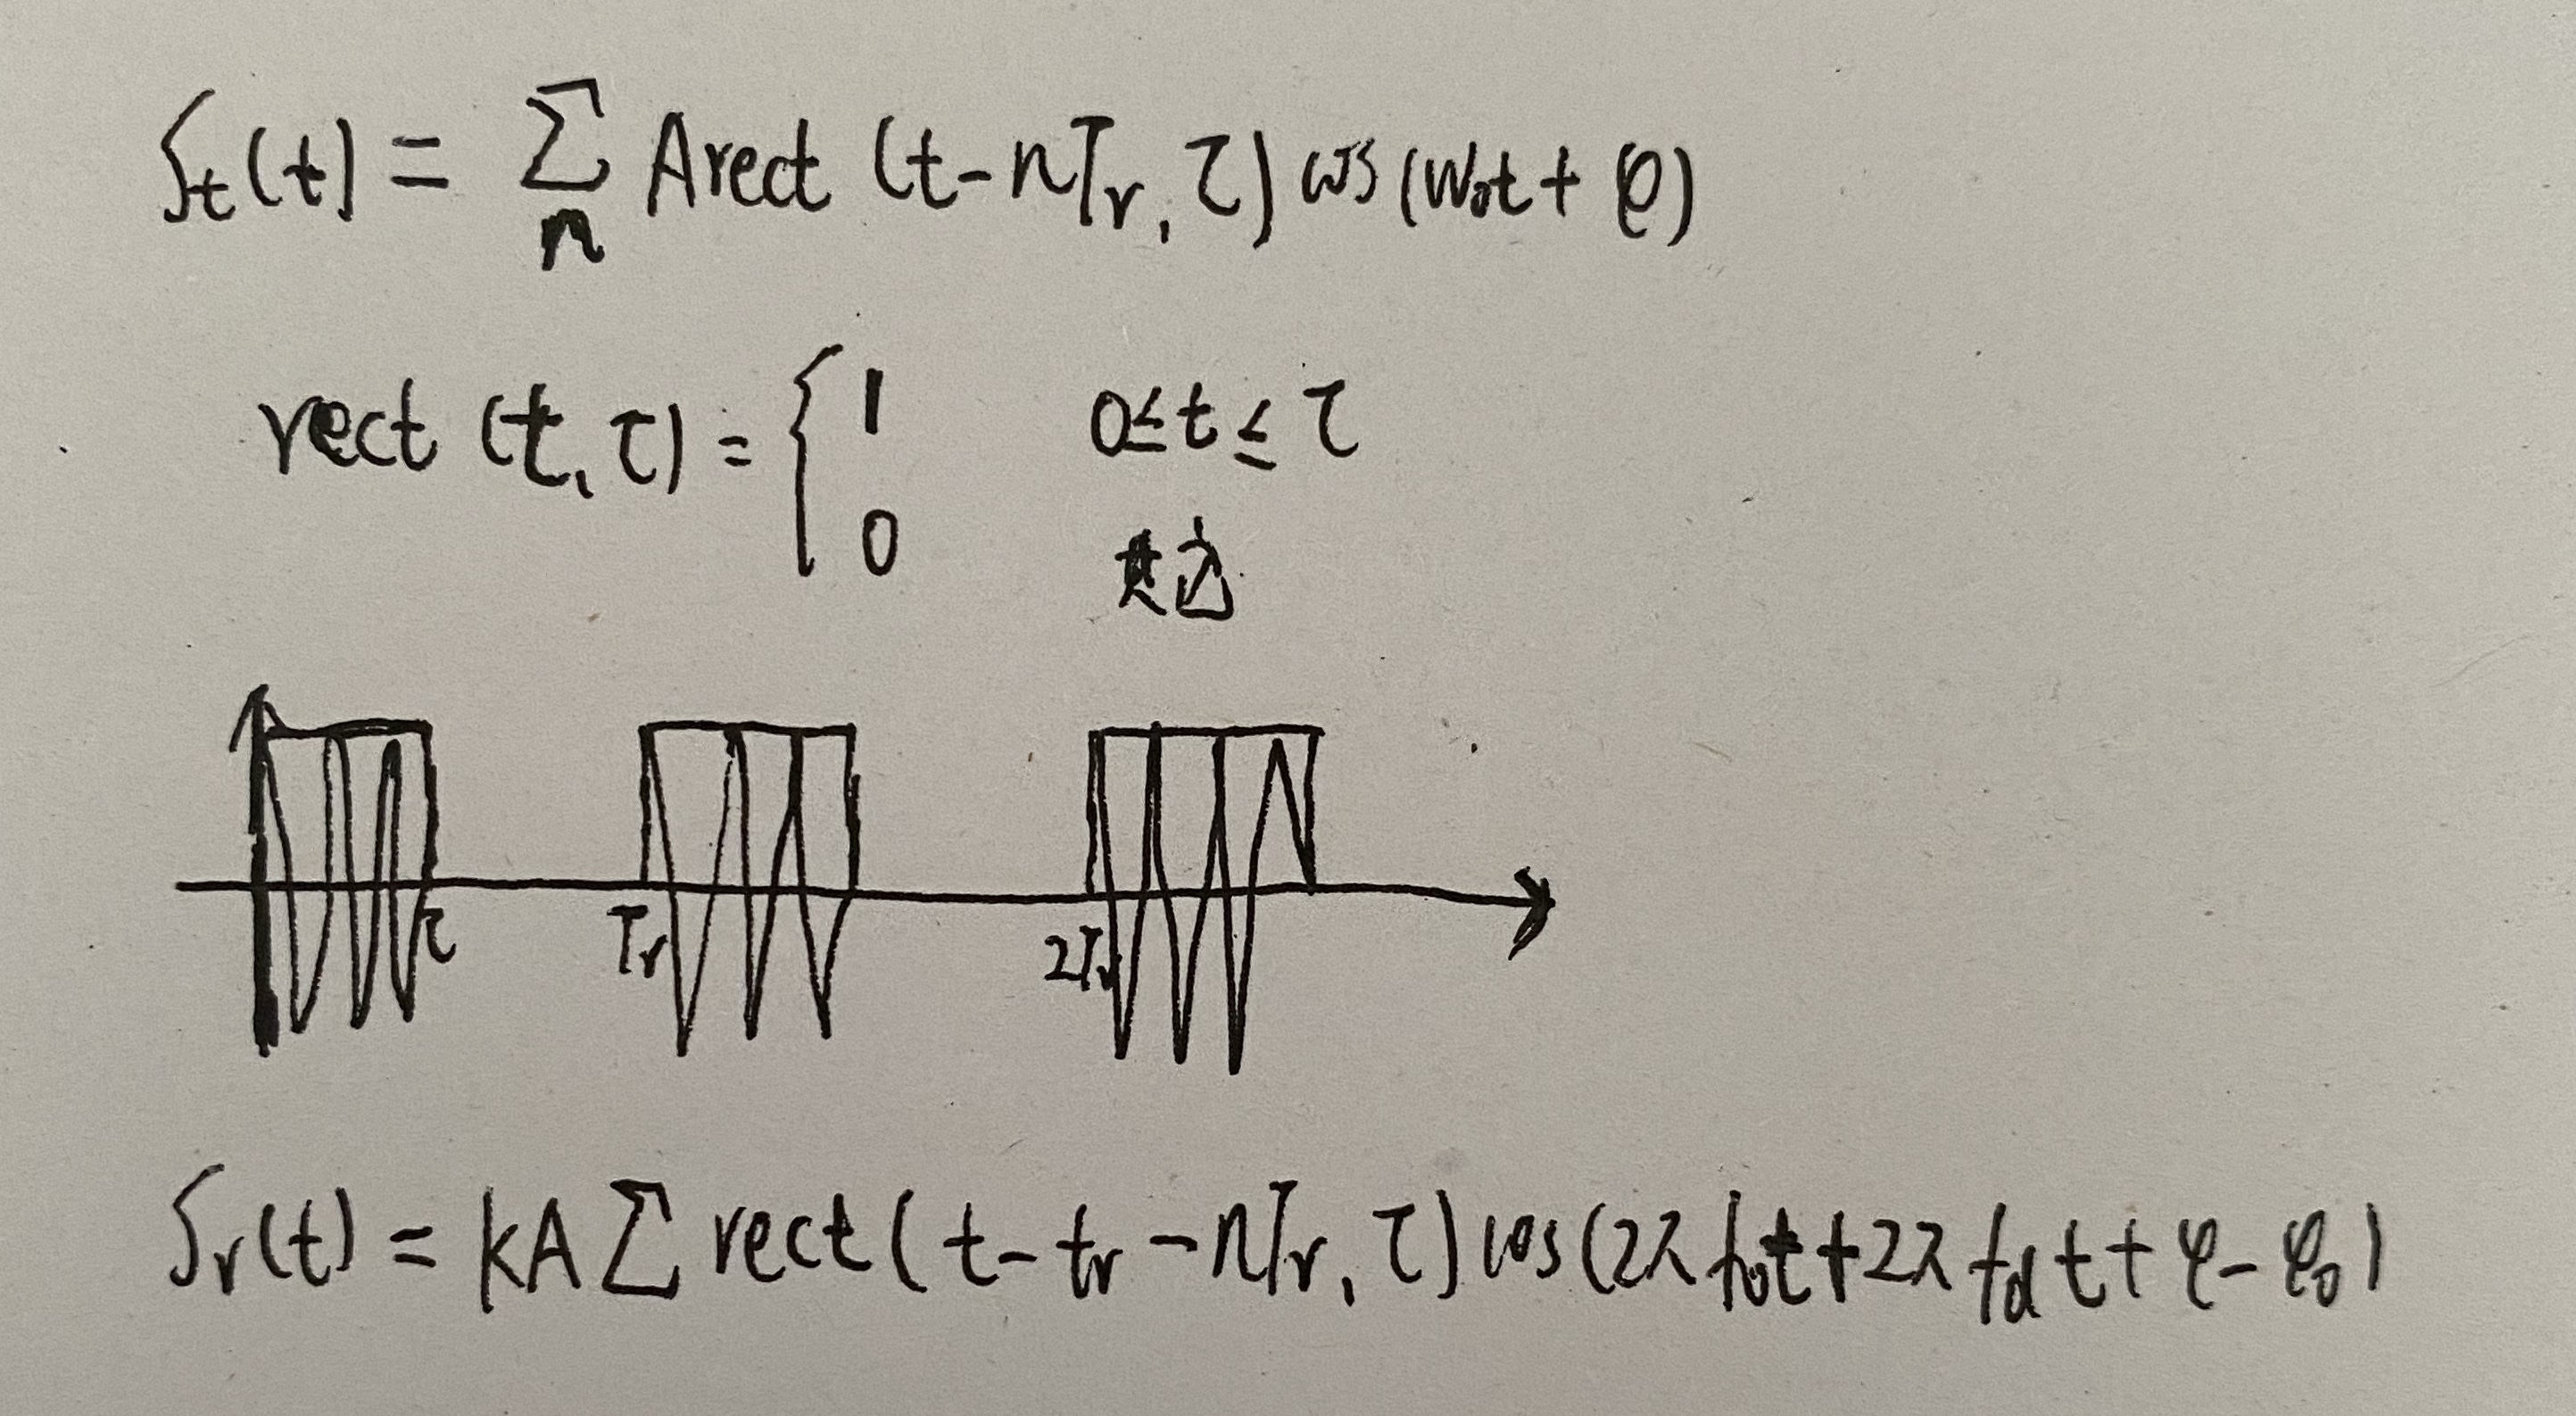 St(t) = Σn Arect (t-nTr, τ) cos(ω₀t + φ)
rect (t, τ) = { 1 0≤t≤τ
0 其它
τ Tr 2Tr
Sr(t) = kA Σ rect(t-tr-nTr, τ) cos(2π f₀t+2π fd t+φ-φ₀)